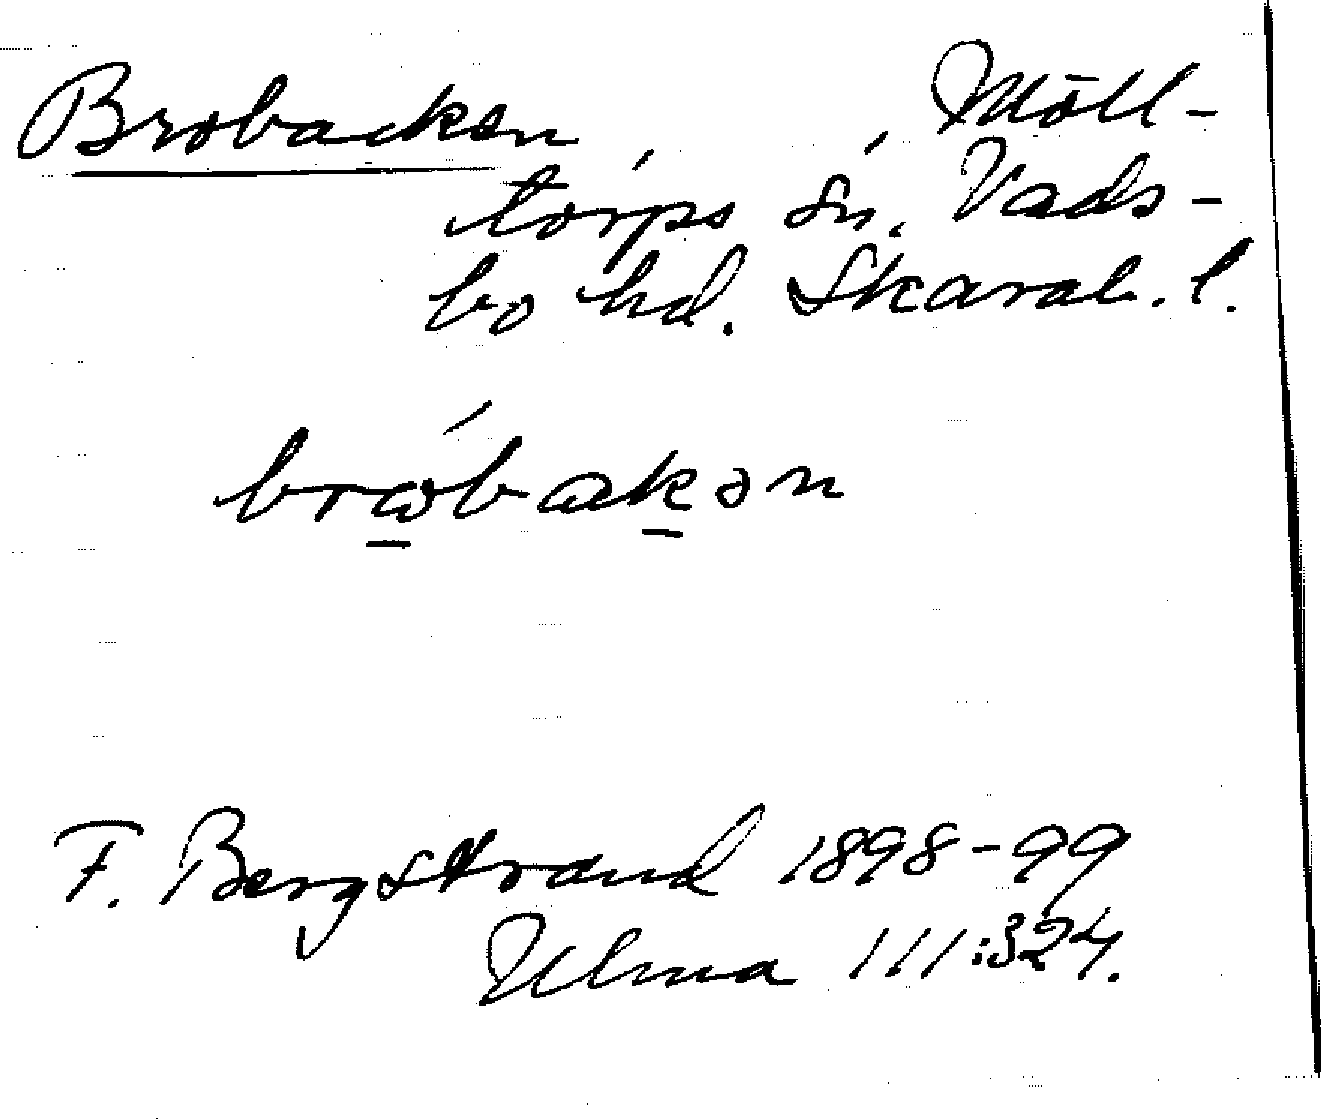 Brobacken, , Möll-
torps sn. Vads-
bo hd. Skarab. l.
brωbakən
F. Bergstrand 1898-99
Ulma 111:324.